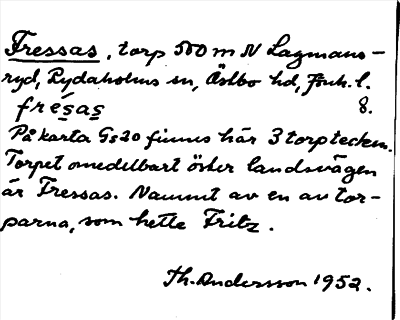 Fressas, torp 500 m N Lagmans-
ryd, Rydaholms sn, Östbo hd, Jönk. l.
frésas 8.
På karta Gs20 finnes här 3 torptecken.
Torpet omedelbart öster landsvägen
är Fressas. Namnet av en av tor-
parna, som hette Fritz.
Th. Andersson 1952.